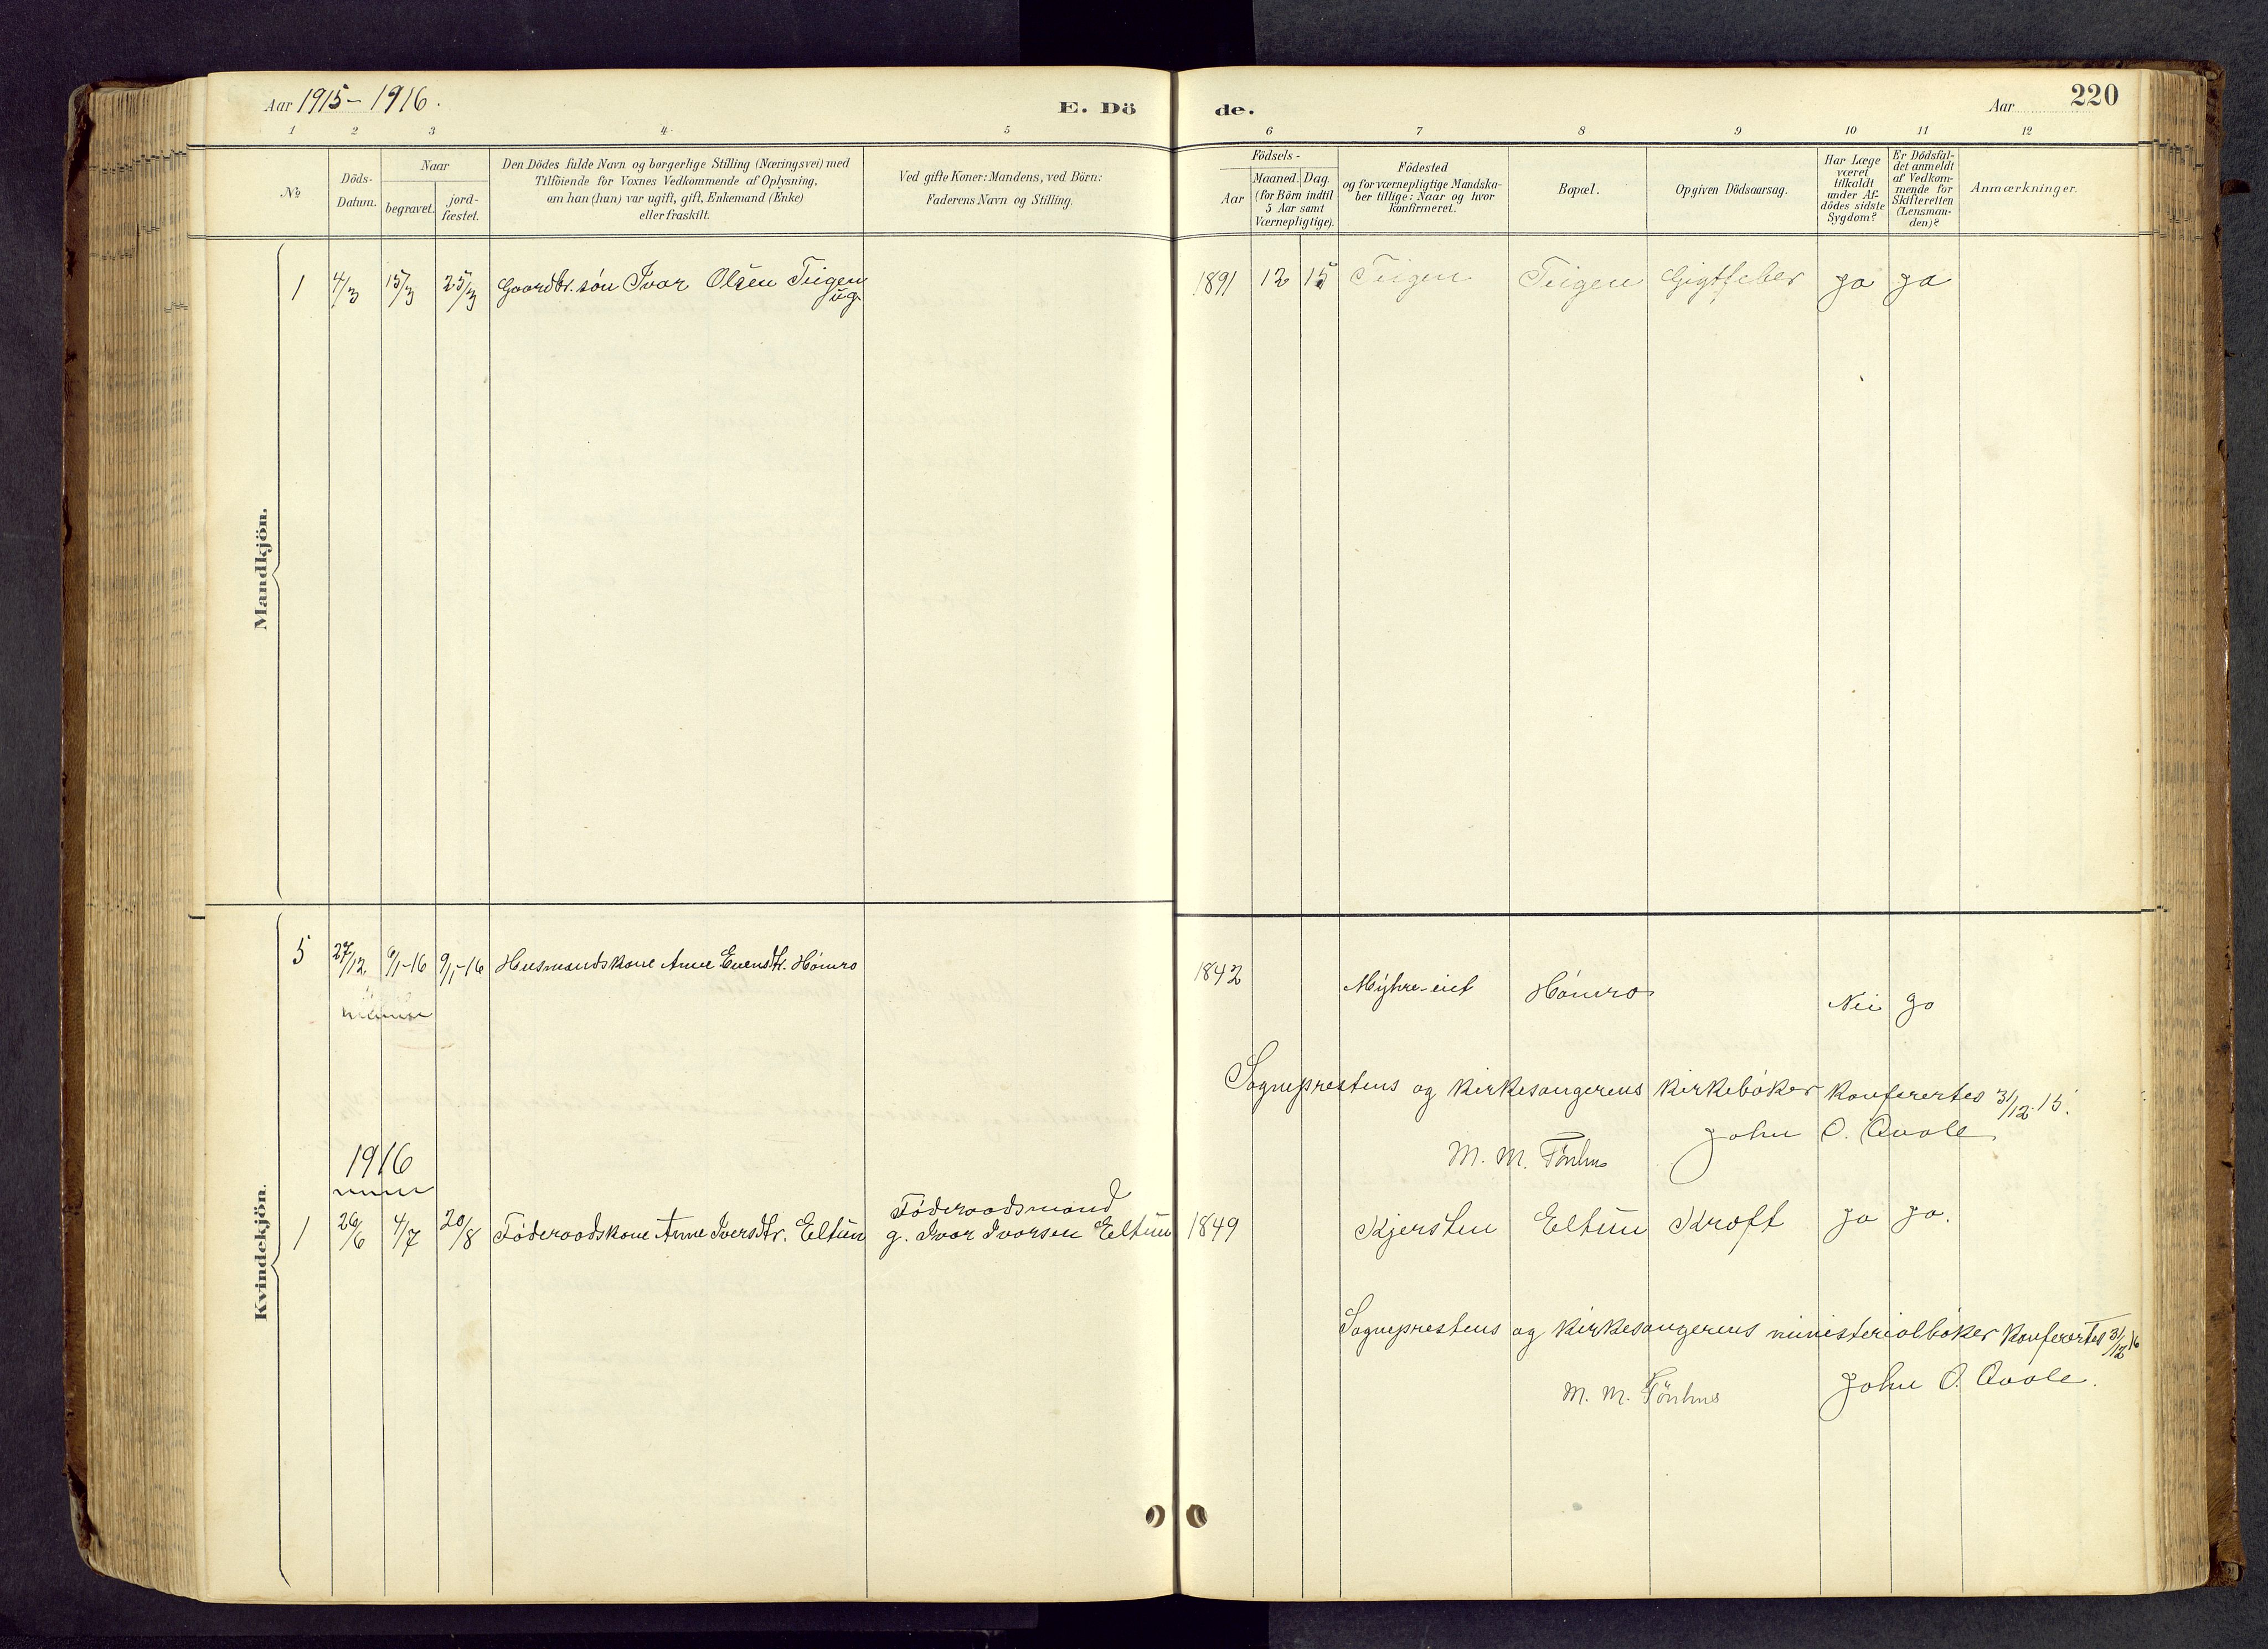 Aar 1915-1916.
E. Döde.
Aar
220
1 2 3 4. 5 6 7 8 9 10 11 12
No
Döds-
Datum.
Naar
begravet.
jord-
fæstet.
Den Dödes fulde Navn og borgerlige Stilling (Næringsvei) med
Tilföiende for Voxnes Vedkommende af Oplysning,
om han (hun) var ugift, gift, Enkemand (Enke)
eller fraskilt.
Ved gifte Koner: Mandens, ved Börn:
Faderens Navn og Stilling.
Födsels-
Aar
Maaned. Dag.
(for Börn indtil
5 Aar samt
Værnepligtige).
Födested
og for værnepligtige Mandska-
ber tillige: Naar og hvor
konfirmeret.
Bopæl.
Opgiven Dödsaarsag.
Har Læge
været
tilkaldt
under Af-
dödes sidste
Sygdom?
Er Dödsfal-
det anmeldt
af Vedkom-
mende for
Skifteretten
(Lensman-
den)?
Anmærkninger.
Mandkjön.
1 4/3 15/3 25/3 Gaardbr. søn Ivar Olsen Teigen 1891 12 15 Teigen Teigen Gigtfeber Ja Ja
ug.
Kvindekjön.
5 27/12 9/1-16 9/1-16 Husmandskone Anne Evensdtr. Hómro 1842 Myhre-eiet Hómro Nei Ja
Sogneprestens og kirkesangerens kirkebøker konfereртes 31/12.15.
John O. Qvale
M. M. Tönhus
1916
Föderaadsmand
1 26/6 4/7 20/8 Föderaadskone Anne Iversdtr. Eltun g. Ivar Ivarsen Eltun 1849 Kjersten Eltun Kræft Ja Ja.
Sogneprestens og kirkesangerens ministerialbøker konferertes 31/12 16
M. M. Tönhus
John O. Qvale.